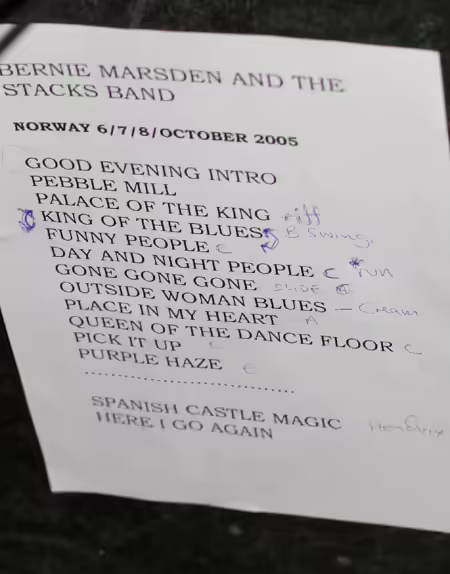 BERNIE MARSDEN AND THE
STACKS BAND
NORWAY 6/7/8/OCTOBER 2005
GOOD EVENING INTRO
PEBBLE MILL
PALACE OF THE KING riff
KING OF THE BLUES B Swing.
FUNNY PEOPLE C
DAY AND NIGHT PEOPLE C *run
GONE GONE GONE SLIDE
OUTSIDE WOMAN BLUES — Cream
PLACE IN MY HEART A
QUEEN OF THE DANCE FLOOR C
PICK IT UP
PURPLE HAZE
................................
SPANISH CASTLE MAGIC Hendrix
HERE I GO AGAIN